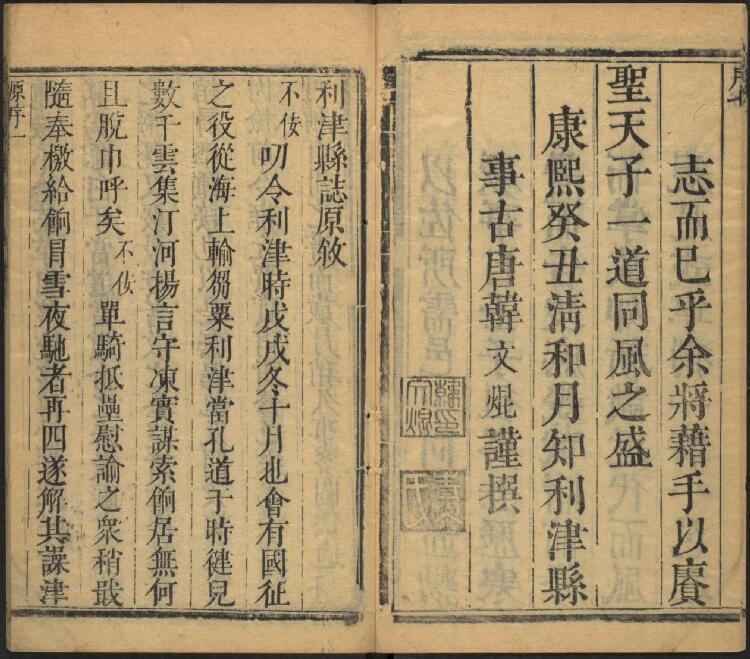 序七
志而已乎余將藉手以賡
聖天子一道同風之盛
康熙癸丑清和月知利津縣
事古唐韓文焜謹撰
利津縣誌原敘
不佞叨令利津時戊戌冬十月也會有國征
之役從海上輸芻粟利津當孔道于時健兒
數千雲集汀河揚言守凍實謀索餉居無何
且脫巾呼矣不佞單騎抵壘慰諭之眾稍戢
隨奉檄給餉冐雪夜馳者再四遂解其譟津
源序一